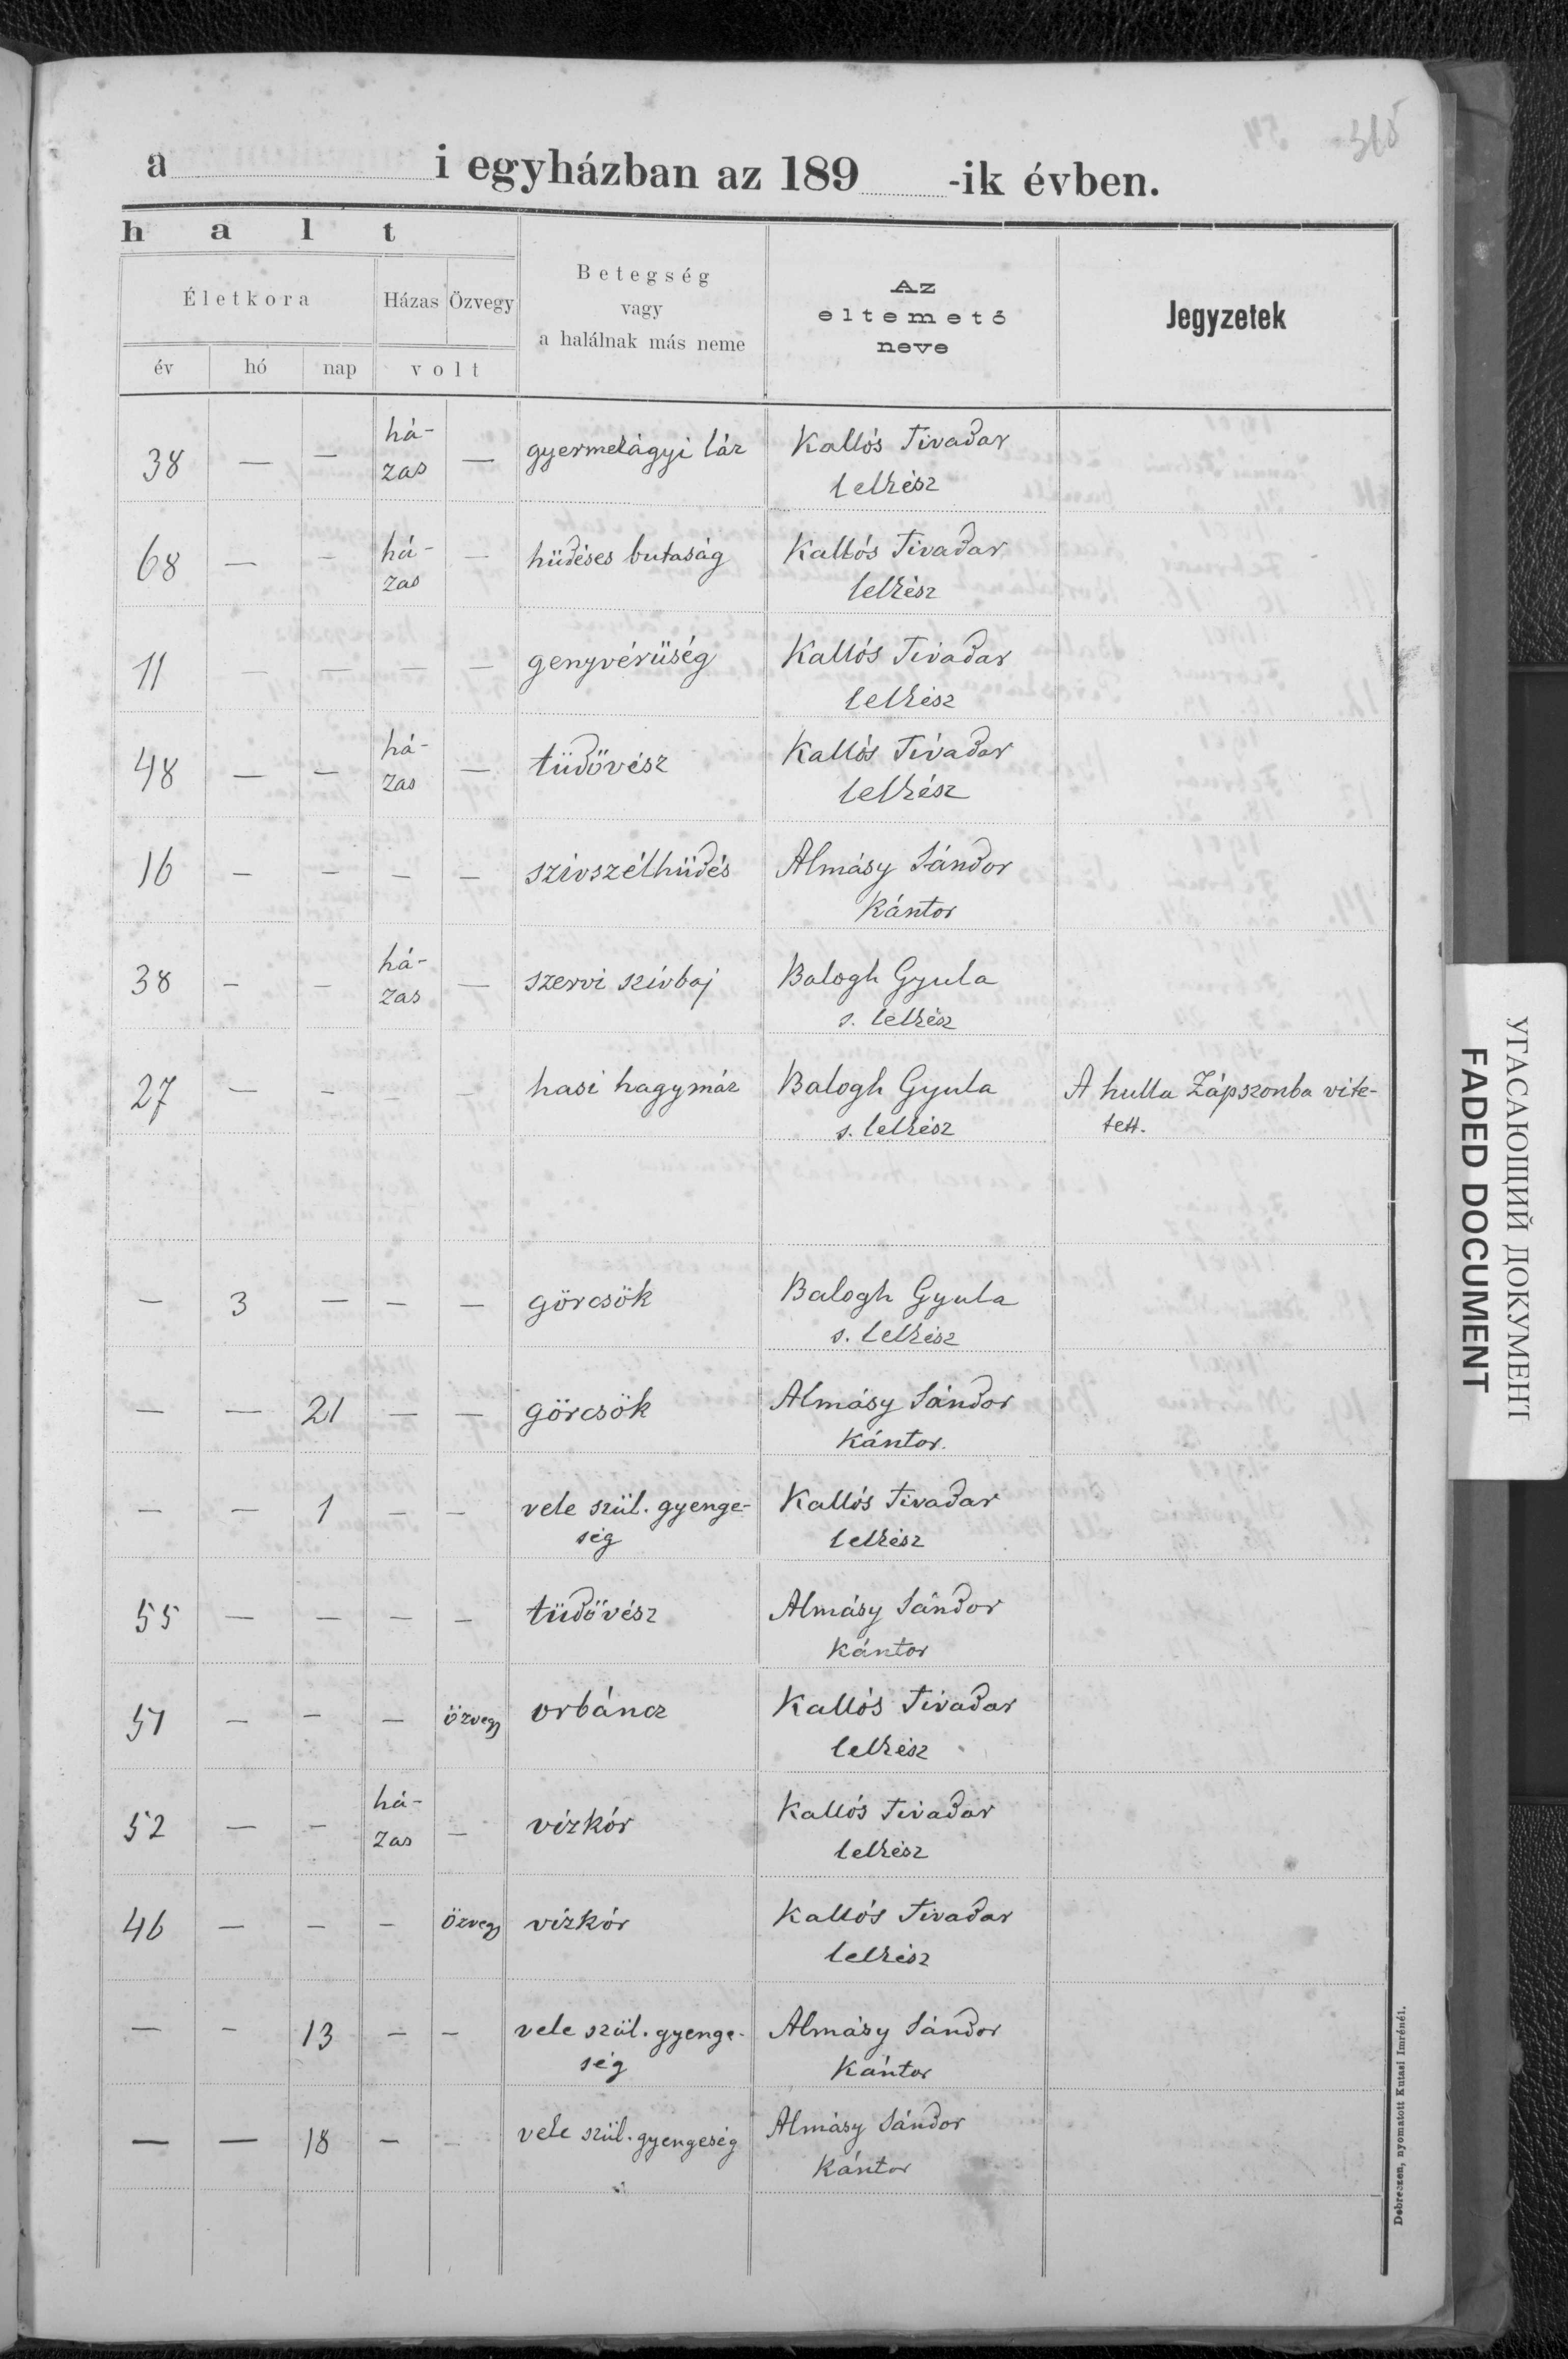 a i egyházban az 189 -ik évben.
halt
Életkora Házas Özvegy Betegség vagy a halálnak más neme Az eltemető neve Jegyzetek
év hó nap volt
38 — — há-zas — gyermekágyi láz Kallós Tivadar
lelkész
68 — — há-zas — hüdéses butaság Kallós Tivadar
lelkész
11 — — — — genyvérüség Kallós Tivadar
lelkész
48 — — há-zas — tüdővész Kallós Tivadar
lelkész
16 — — — — szivszélhüdés Almásy Sándor
Kántor
38 — — há-zas — szervi szívbaj Balogh Gyula
s. lelkész
27 — — — hasi hagymáz Balogh Gyula A hulla Zápszonba vite-
s. lelkész tett.
— 3 — — — görcsök Balogh Gyula
s. lelkész
— — 21 — — görcsök Almásy Sándor
Kántor.
— — 1 — — vele szül. gyenge- Kallós Tivadar
ség lelkész
55 — — — — tüdővész Almásy Sándor
Kántor
51 — — — özvegy orbáncz Kallós Tivadar
lelkész
52 — — há-zas — vízkór Kallós Tivadar
lelkész
46 — — — özvegy vízkór Kallós Tivadar
lelkész
— — 13 — — vele szül. gyenge- Almásy Sándor
ség Kántor
— — 18 — — vele szül. gyengeség Almásy Sándor
Kántor
Debreczen, nyomatott Kutasi Imrénél.
УГАСАЮЩИЙ ДОКУМЕНТ
FADED DOCUMENT